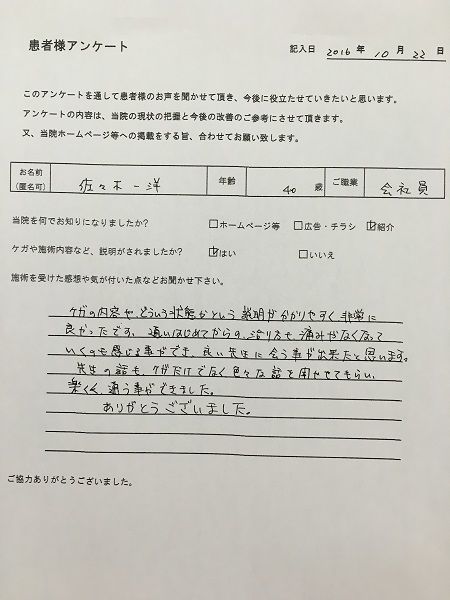 患者様アンケート
記入日 2016年 10月 22日
このアンケートを通して患者様のお声を聞かせて頂き、今後に役立たせていきたいと思います。
アンケートの内容は、当院の現状の把握と今後の改善のご参考にさせて頂きます。
又、当院ホームページ等への掲載をする旨、合わせてお願い致します。
お名前 (匿名可) 佐々木一洋 年齢 40歳 ご職業 会社員
当院を何でお知りになりましたか? □ホームページ等 □広告・チラシ ☑紹介
ケガや施術内容など、説明がされましたか? ☑はい □いいえ
施術を受けた感想や気が付いた点などお聞かせ下さい。
ケガの内容や、どういう状態かという説明が分かりやすく、非常に
良かったです。通いはじめてからの、治り方も、痛みがなくなって
いくのも感じる事ができ、良い先生に会う事が出来たと思います。
先生の話も、ケガだけでなく色々な話を聞かせてもらい、
楽しく、通う事ができました。
ありがとうございました。
ご協力ありがとうございました。